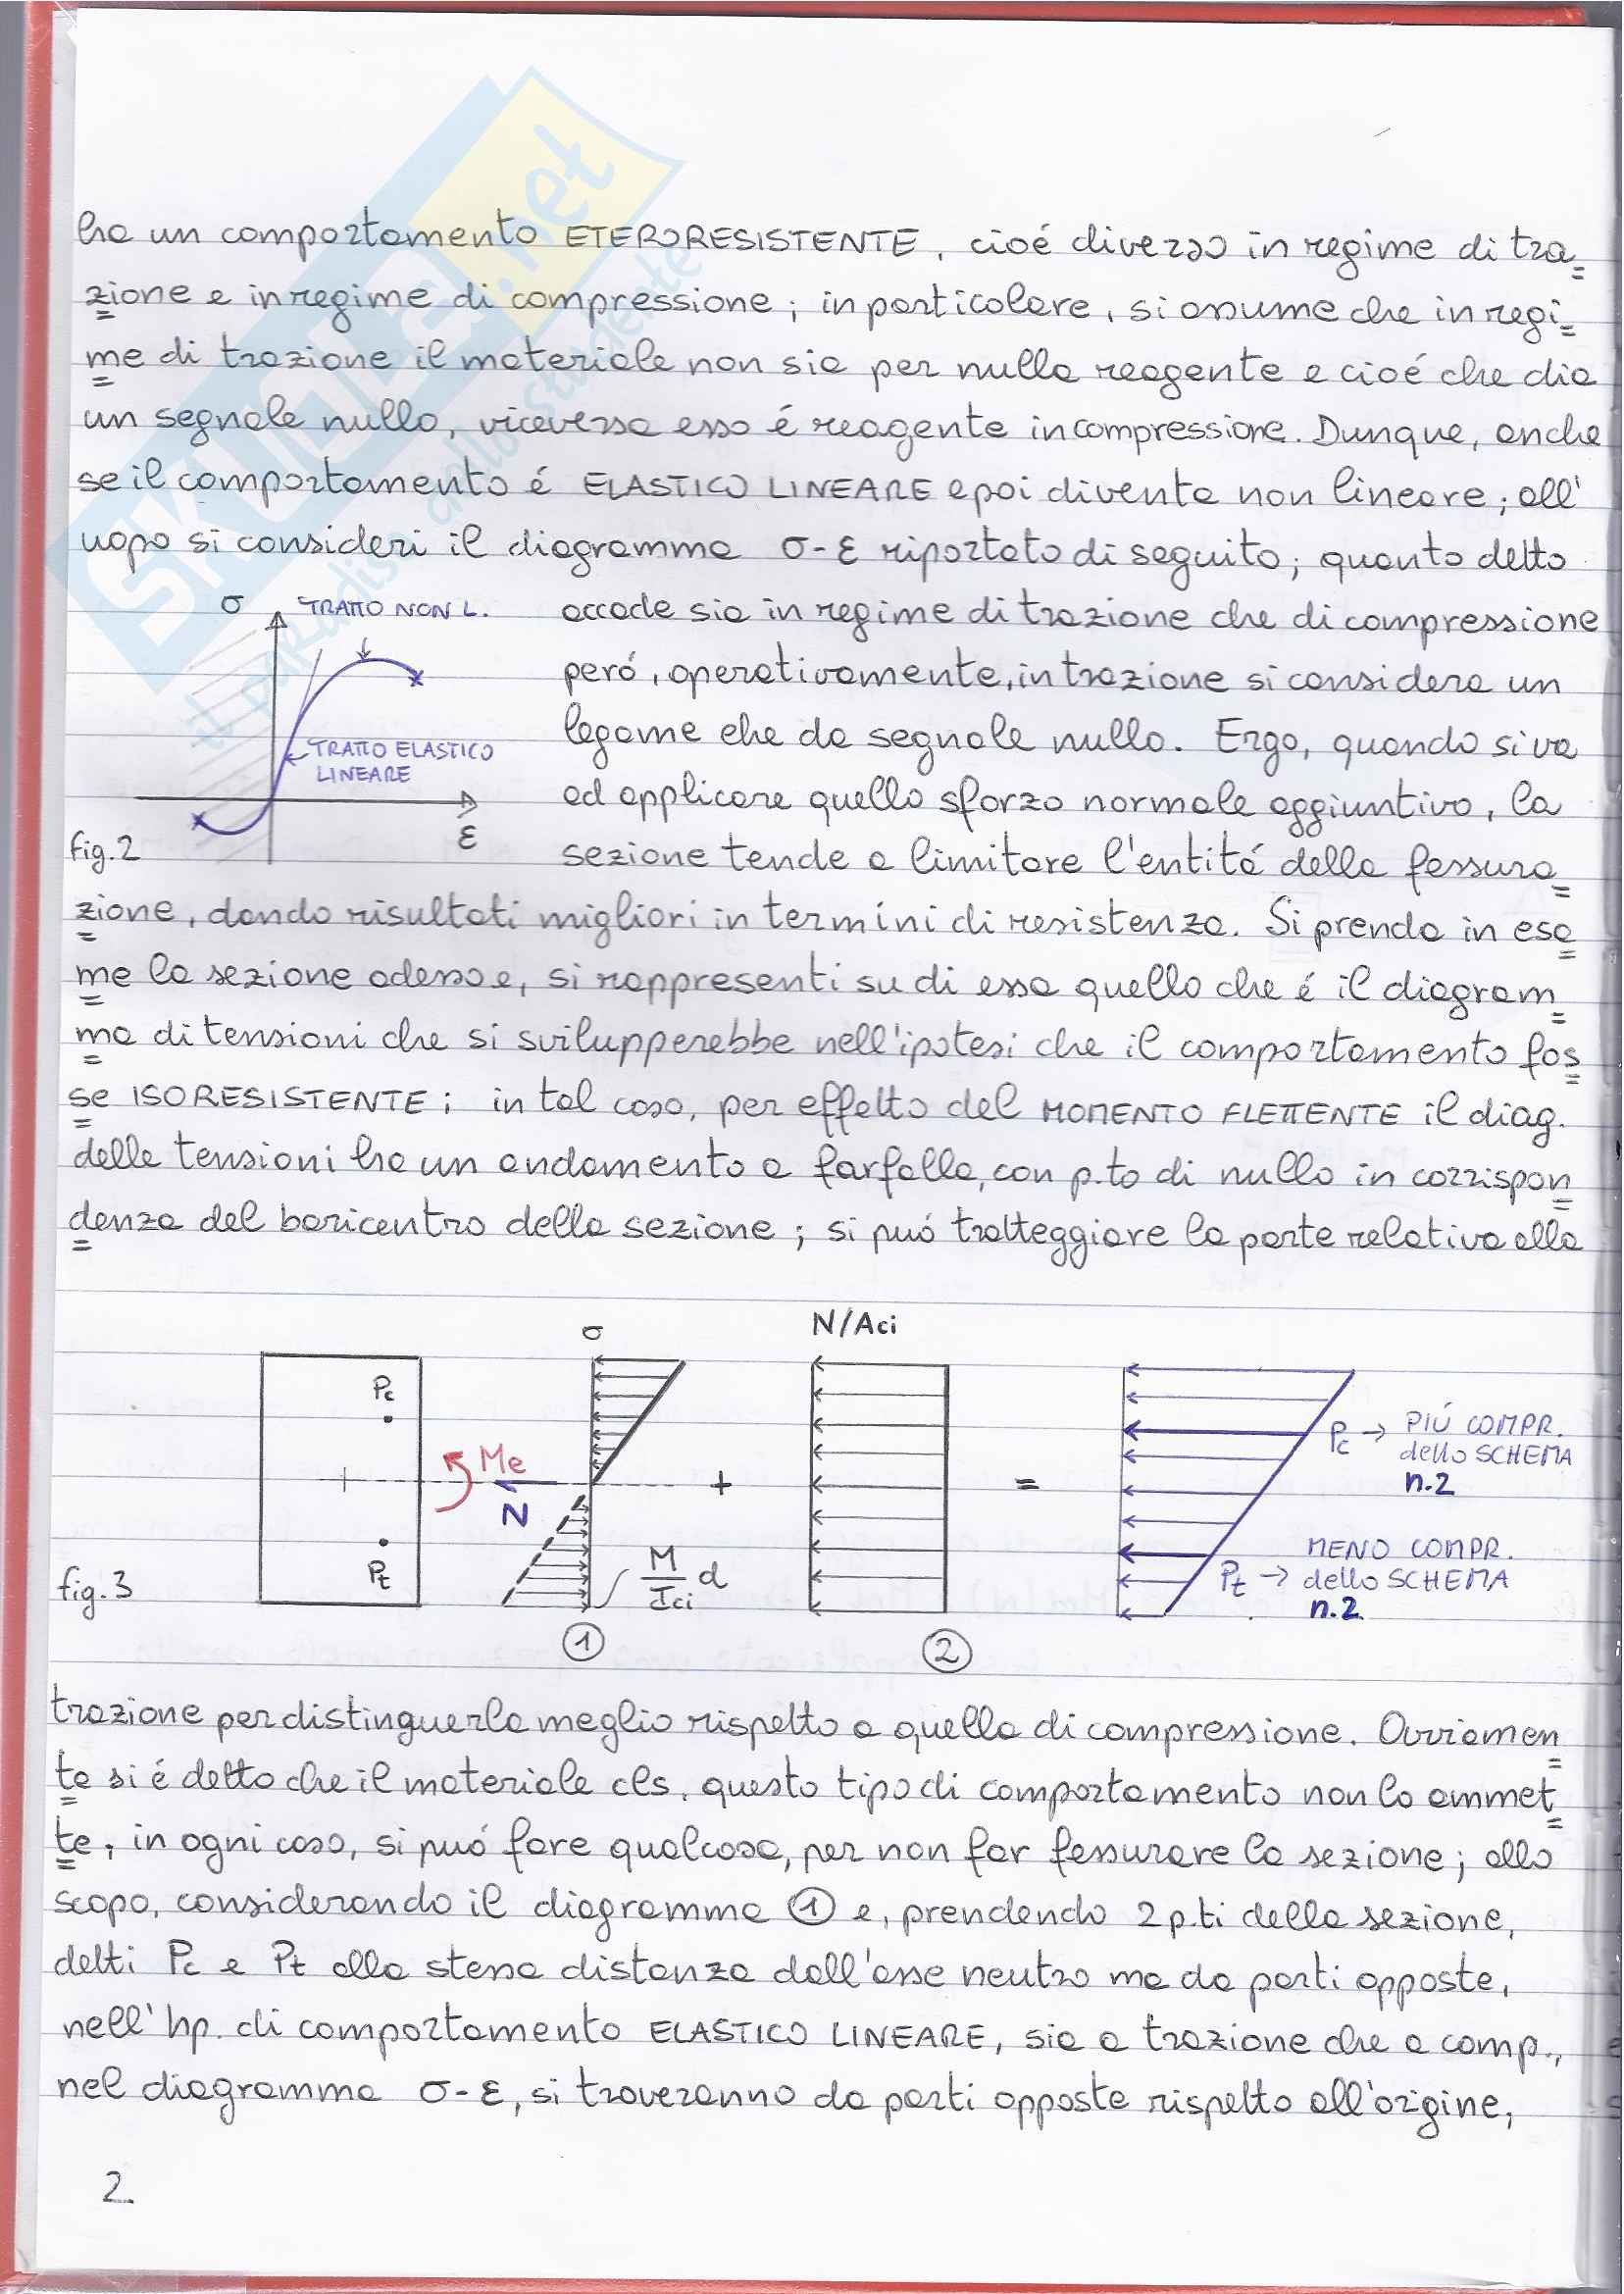 ha un comportamento ETERORESISTENTE, cioé diverso in regime di tra=
zione e in regime di compressione; in particolare, si assume che in regi=
me di trazione il materiale non sia per nulla reagente e cioé che dia
un segnale nullo, viceversa esso é reagente in compressione. Dunque, anche
se il comportamento é ELASTICO LINEARE e poi diventa non lineare; all'
uopo si consideri il diagramma σ-ε riportato di seguito; quanto detto
accade sia in regime di trazione che di compressione
peró, operativamente, in trazione si considera un
legame che da segnale nullo. Ergo, quando si va
ad applicare quello sforzo normale aggiuntivo, la
sezione tende a limitare l'entitá della fessura=
σ
TRATTO NON L.
TRATTO ELASTICO
LINEARE
ε
fig.2
zione, dando risultati migliori in termini di resistenza. Si prenda in esa=
me la sezione adesso e, si rappresenti su di essa quello che é il diagram=
ma di tensioni che si svilupperebbe nell'ipotesi che il comportamento fos=
se ISORESISTENTE; in tal caso, per effetto del MOMENTO FLETTENTE il diag.
delle tensioni ha un andamento a farfalla, con p.to di nullo in corrispon=
denza del baricentro della sezione; si puó tratteggiare la parte relativa alla
σ
N/Aci
Pc
Me
N
+
=
Pc → PIÚ COMPR.
dello SCHEMA
n.2
Pt
M/Ici d
Pt → MENO COMPR.
dello SCHEMA
n.2
fig.3
1
2
trazione per distinguerla meglio rispetto a quella di compressione. Ovviamen=
te si é detto che il materiale cls. questo tipo di comportamento non lo ammet=
te, in ogni caso, si puó fare qualcosa, per non far fessurare la sezione; allo
scopo, considerando il diagramma 1 e, prendendo 2 p.ti della sezione,
detti Pc e Pt alla stessa distanza dall'asse neutro ma da parti opposte,
nell'hp. di comportamento ELASTICO LINEARE, sia a trazione che a comp.,
nel diagramma σ-ε, si troveranno da parti opposte rispetto all'origine,
2
SKUOLA.net
il paradiso dello studente